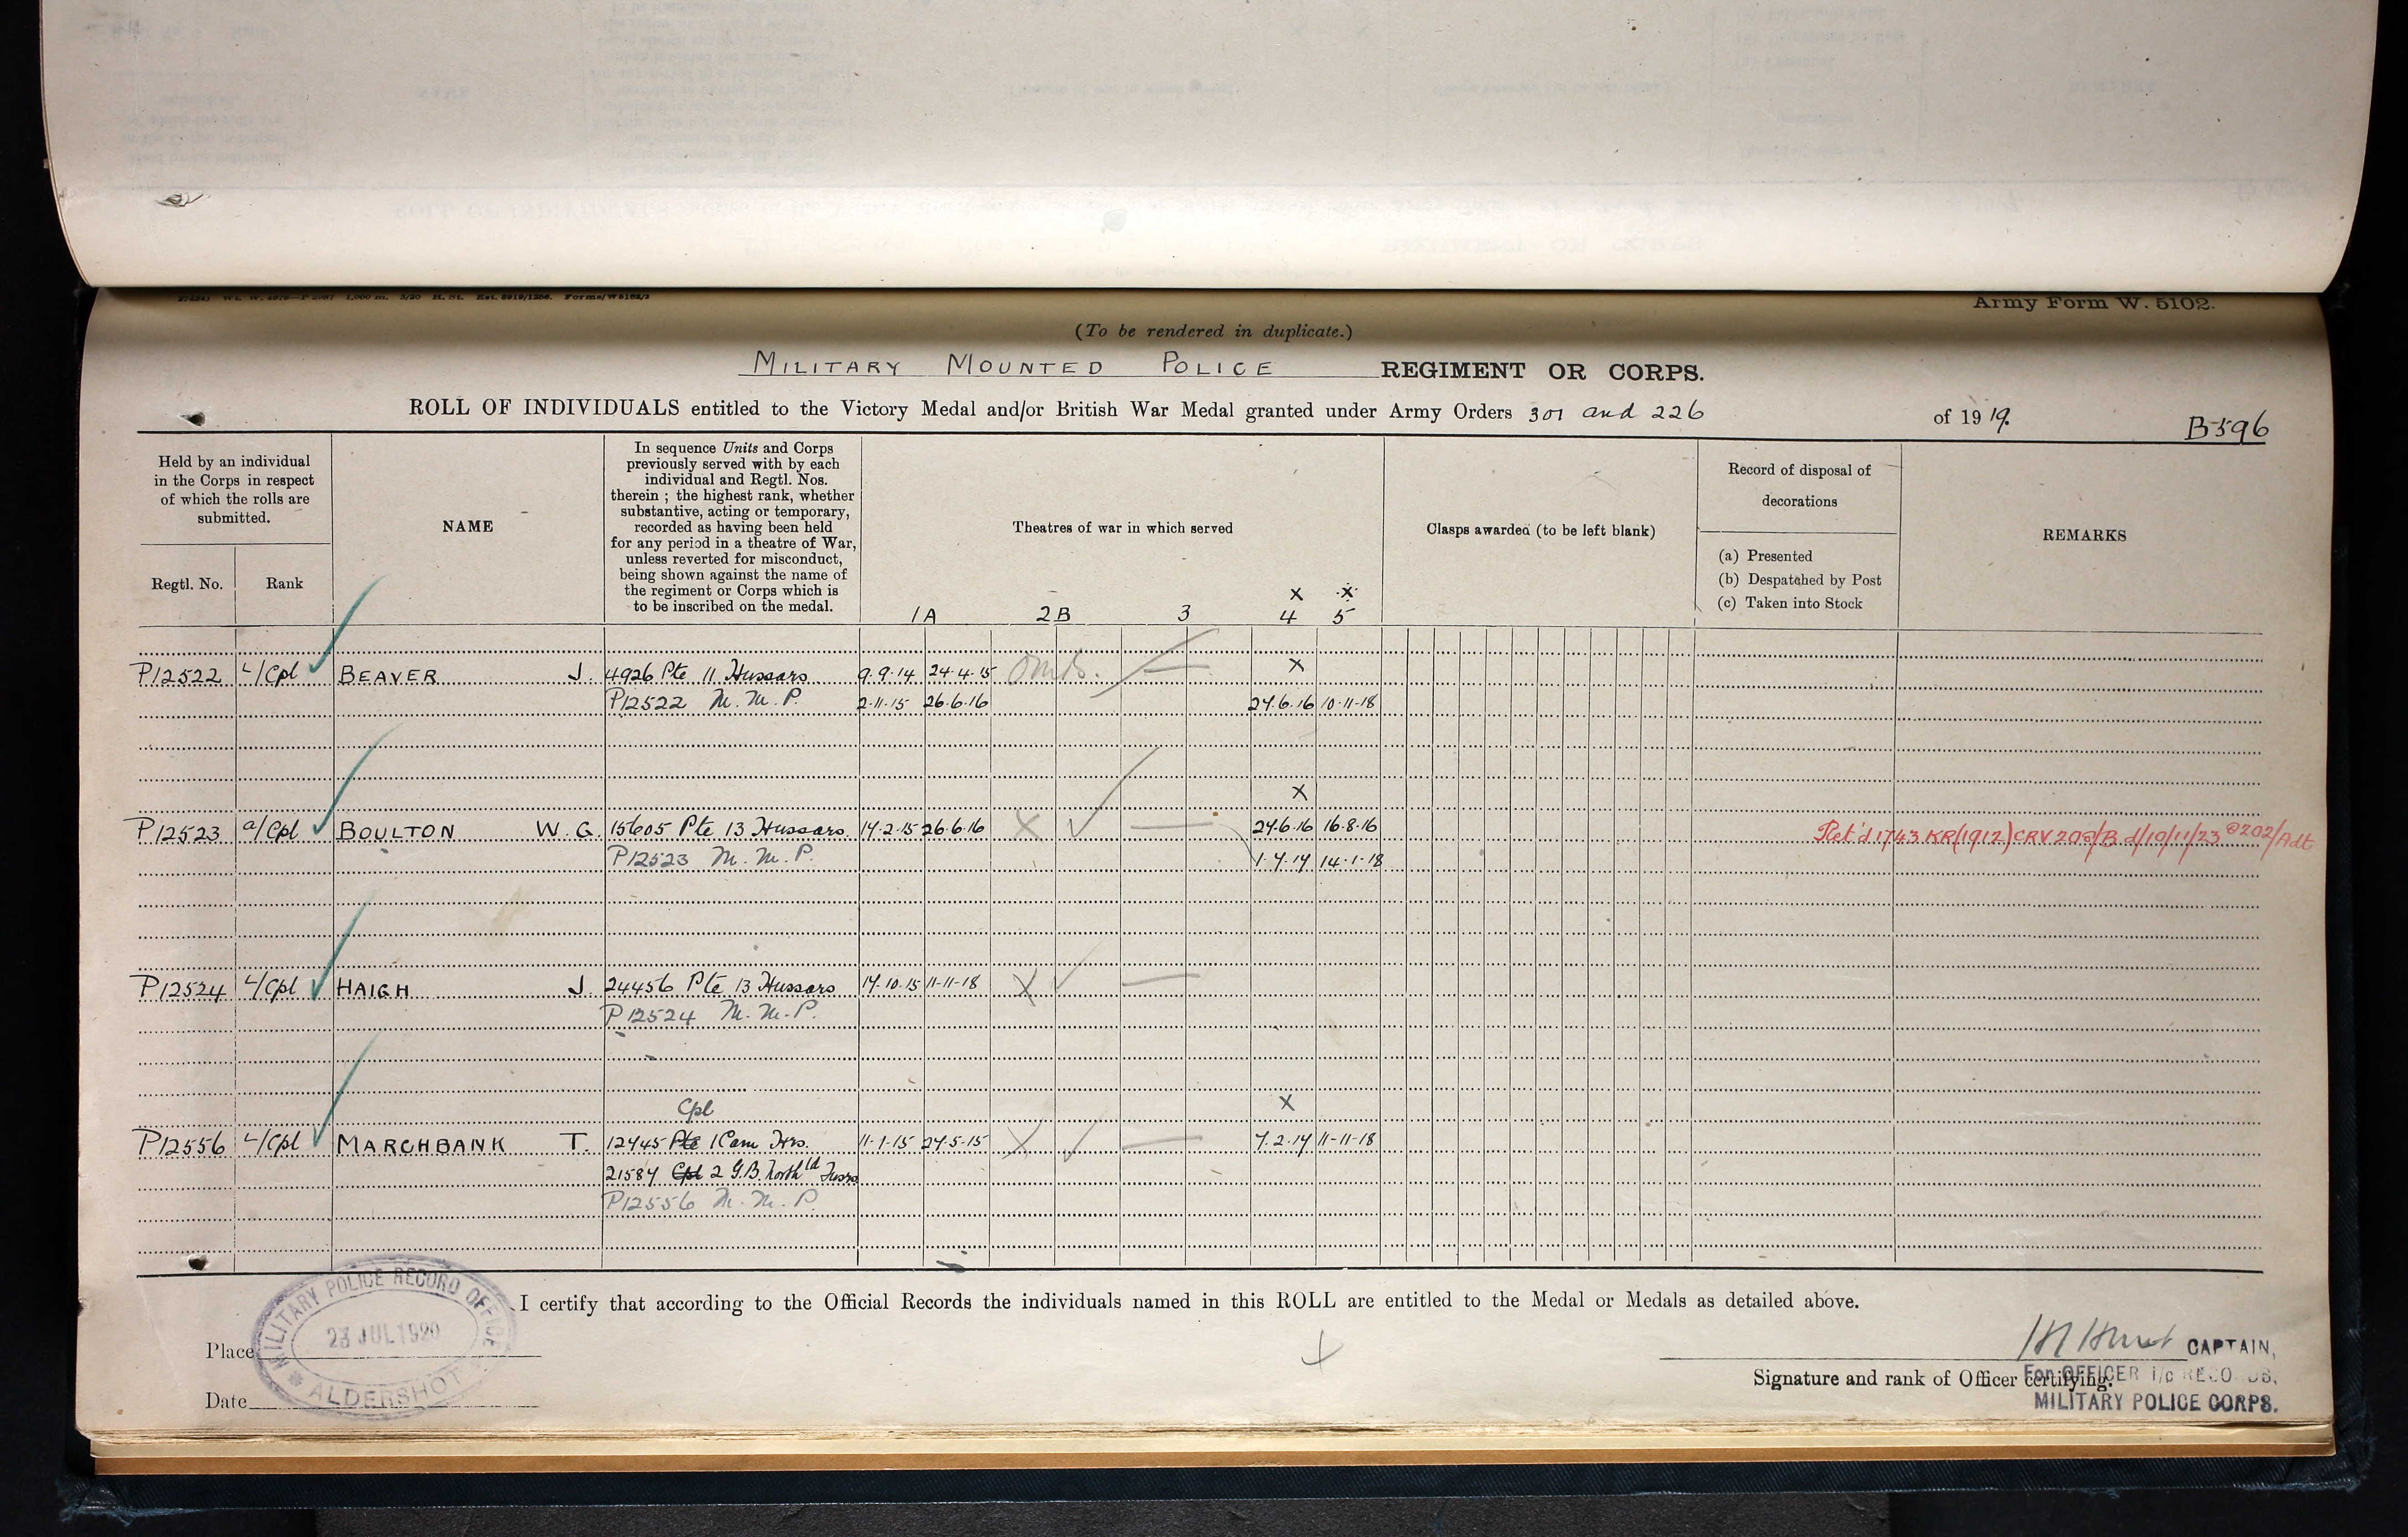 Army Form W. 5102.
(To be rendered in duplicate.)
MILITARY MOUNTED POLICE REGIMENT OR CORPS.
ROLL OF INDIVIDUALS entitled to the Victory Medal and/or British War Medal granted under Army Orders 301 and 226 of 1919.
B596
Held by an individual
in the Corps in respect
of which the rolls are
submitted.
Regtl. No.
Rank
NAME
In sequence Units and Corps
previously served with by each
individual and Regtl. Nos.
therein ; the highest rank, whether
substantive, acting or temporary,
recorded as having been held
for any period in a theatre of War,
unless reverted for misconduct,
being shown against the name of
the regiment or Corps which is
to be inscribed on the medal.
Theatres of war in which served
x x
1A 2B 3 4 5
Clasps awarded (to be left blank)
Record of disposal of
decorations
(a) Presented
(b) Despatched by Post
(c) Taken into Stock
REMARKS
x
P12522 L/Cpl BEAVER J. 4926 Pte 11 Hussars 9.9.14 24.4.15
P12522 M.M.P. 2.11.15 26.6.16 27.6.16 10.11.18
x
P12523 a/Cpl BOULTON W. G. 15605 Pte 13 Hussars 17.2.15 26.6.16 X 27.6.16 16.8.16 Ret'd 1743 KR(1912) CRV 208/B d/10/11/23 @202/Adt
P12523 M.M.P. 1.7.17 14.1.18
P12524 L/Cpl HAIGH J. 24456 Pte 13 Hussars 17.10.15 11-11-18 X
P12524 M.M.P.
Cpl x
P12556 L/Cpl MARCHBANK T. 12745 Pte 1 Cam Hrs. 11.1.15 27.5.15 X 7.2.17 11-11-18
21587 Cpl 2 G.B. North'ld Fusrs
P12556 M.M.P.
I certify that according to the Official Records the individuals named in this ROLL are entitled to the Medal or Medals as detailed above.
MILITARY POLICE RECORD OFFICE
23 JUL 1920
ALDERSHOT
Place
Date
CAPTAIN,
Signature and rank of Officer certifying.
For OFFICER i/c RECORDS,
MILITARY POLICE CORPS.